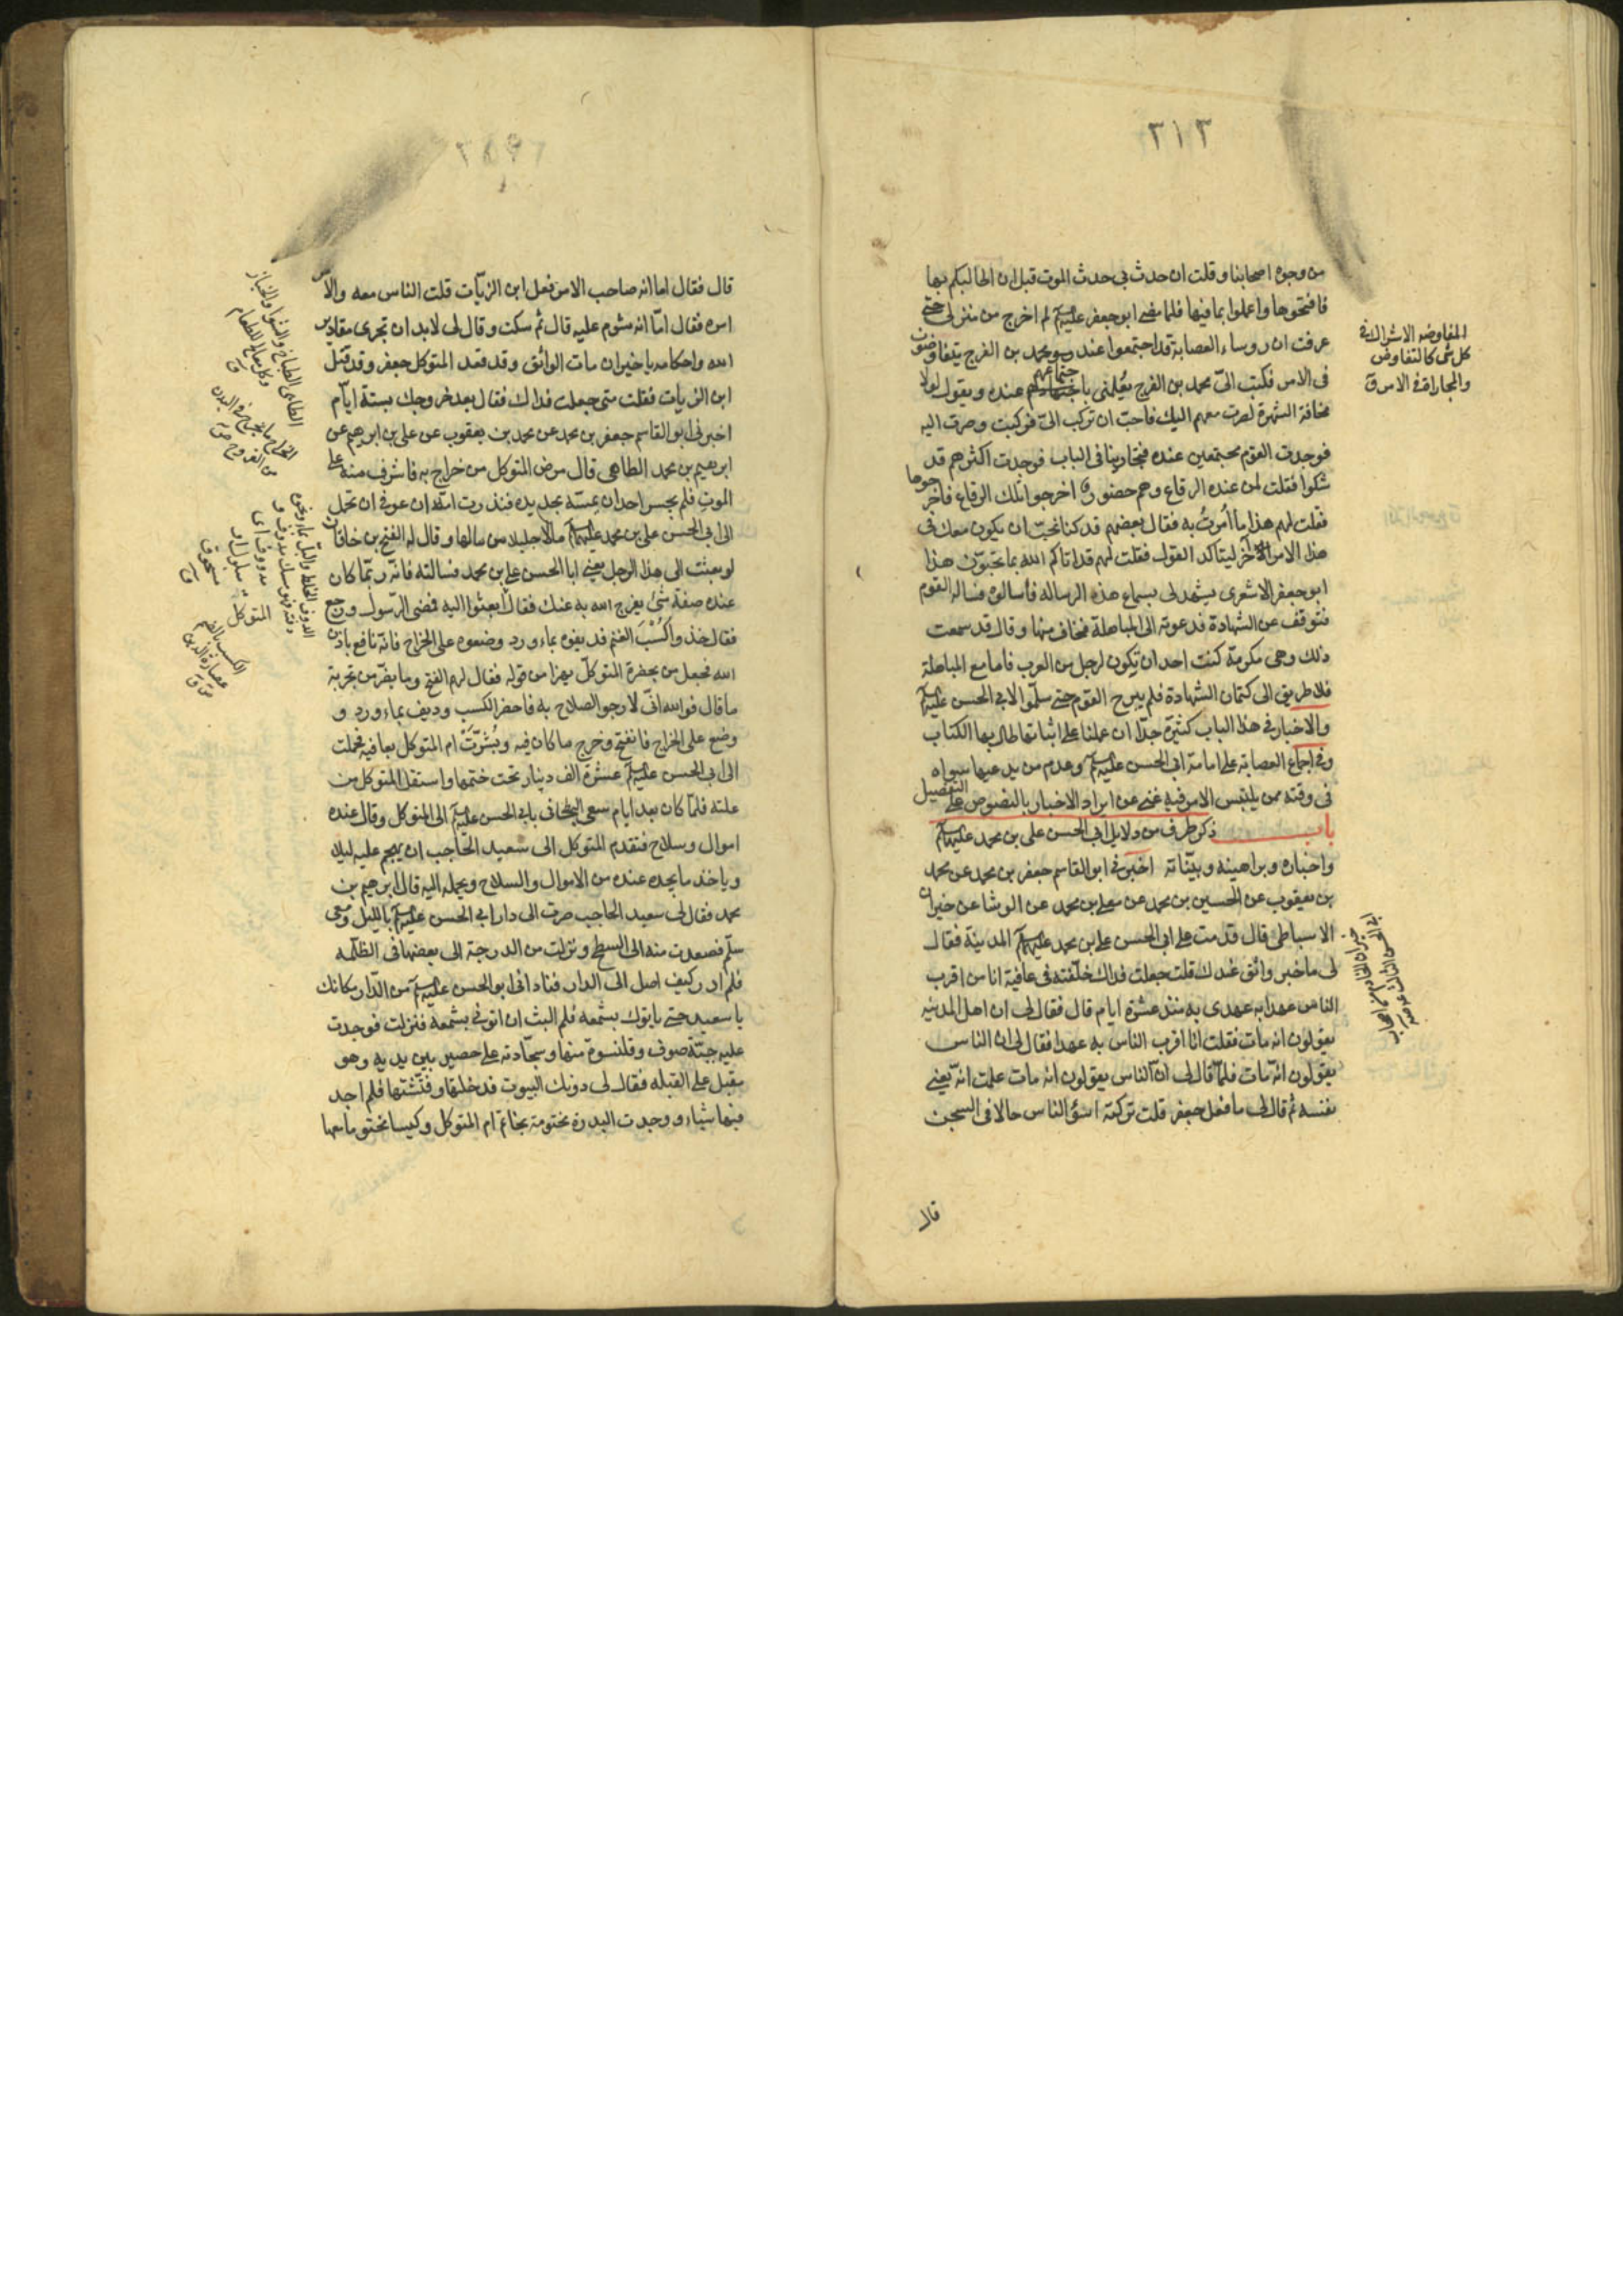 ٣١٣
من وجوه اصحابنا وقلت ان حدث بي حدث الموت قبل ان اطالبكم بها
فافتحوها واعملوا بما فيها فلما مضى ابو جعفر عليه السلم لم اخرج من منزلى حتى
عرفت ان روساء العصابة قد اجتمعوا عند محمد بن الفرج يتفاوضون
فى الامر فكتب الىّ محمد بن الفرج يُعلمنى باجتماعهم عنده ويقول لولا
مخافة الشهرة لصرت معهم اليك فاحبّ ان تركب الىّ فركبت وصرت اليه
فوجدت القوم مجتمعين عنده فتجارينا فى الباب فوجدت اكثرهم قد
شكوا فقلت لمن عنده الرقاع وهم حضور اخرجوا تلك الرقاع فاخرجوها
فقلت لهم هذا ما اُمرتُ به فقال بعضهم قد كنا نحبّ ان يكون معك فى
هذا الامر آخر ليتاكد القول فقلت لهم قد اتاكم الله بما تحبّون هذا
ابو جعفر الاشعرى يشهد لى بسماع هذه الرسالة فاسالوه فساله القوم
فتوقف عن الشهادة فدعوته الى المباهلة فخاف منها وقال قد سمعت
ذلك وهى مكرمة كنت احبّ ان تكون لرجل من العرب فاما مع المباهلة
فلا طريق الى كتمان الشهادة فلم يبرح القوم حتى سلّموا لابى الحسن عليه السلم
والاخبار فى هذا الباب كثيرة جدّا ان عملنا على اثباتها طال بها الكتاب
وفى اجماع العصابة على امامة ابى الحسن عليه السلم وعدم من يدعيها سواه
فى وقته ممن يلتبس الامر فيه غنى عن ايراد الاخبار بالنصوص على التفصيل
باب ذكر طرف من دلايل ابى الحسن على بن محمد عليهما السلم
واخباره وبراهينه وبيّناته اخبرنى ابو القاسم جعفر بن محمد عن محمد
بن يعقوب عن الحسين بن محمد عن معلى بن محمد عن الوشا عن خيران
الاسباطى قال قدمت على ابى الحسن على بن محمد عليهما السلم المدينة فقال
لى ما خبر واثق عندك قلت جعلت فداك خلّفته فى عافية انا من اقرب
الناس عهدا به عهدى به منذ عشرة ايام قال فقال لى ان اهل المدينه
يقولون انه مات فقلت انا اقرب الناس به عهدا فقال لى ان الناس
يقولون انّه مات فلمّا قال لى انّ الناس يقولون انه مات علمت انّه يعنى
نفسه ثم قال لى ما فعل جعفر قلت تركته اسؤ الناس حالا فى السجن
قال
المفاوضه الاشتراك فى
كل شى كالتفاوض
والمجاراة فى الامر ق
قال فقال اما انه صاحب الامر ما فعل ابن الزيّات قلت الناس معه والامر
امره فقال امّا انه مشوم عليه قال ثم سكت وقال لى لابد ان تجرى مقادير
الله واحكامه يا خيران مات الواثق وقد قعد المتوكل جعفر وقد قتل
ابن الزيات فقلت متى جعلت فداك فقال بعد خروجك بستة ايّام
اخبرنى ابو القاسم جعفر بن محمد عن محمد بن يعقوب عن على بن ابرهيم عن
ابرهيم بن محمد الطاهى قال مرض المتوكل من خراج به فاشرف منه على
الموت فلم يجسر احد ان يمسّه بحديدة فنذرت امّه ان عوفى ان تحمل
الى ابى الحسن على بن محمد عليهما السلم مالا جليلا من مالها وقال له الفتح بن خاقان
لو بعثت الى هذا الرجل يعنى ابا الحسن على بن محمد فسالته فانّه ربّما كان
عنده صفة شئ يفرج الله به عنك فقال ابعثوا اليه فمضى الرّسول ورجع
فقال خذوا كُسْبَ الغنم فديفوه بماء ورد وضعوه على الخراج فانّه نافع باذن
الله فجعل من بحضرة المتوكلّ يهزا من قوله فقال لهم الفتح وما يضرّ من تجربة
ما قال فوالله انّى لارجو الصلاح به فاحضر الكسب وديف بماء ورد و
وضع على الخراج فانفتح وخرج ما كان فيه وبُشرّتْ ام المتوكل بعافيته فحملت
الى ابى الحسن عليه السلم عشرة الف دينار تحت ختمها واستقل المتوكل من
علته فلمّا كان بعد ايام سعى البطحانى بابى الحسن عليه السلم الى المتوكل وقال عنده
اموال وسلاح فتقدم المتوكل الى سعيد الحاجب ان يهجم عليه ليلا
وياخذ ما يجده عنده من الاموال والسلاح ويحمله اليه قال ابرهيم بن
محمد فقال لى سعيد الحاجب صرت الى دار ابى الحسن عليه السلم بالليل ومعى
سلّم فصعدت منه الى السطح ونزلت من الدرجة الى بعضها فى الظلمه
فلم ادر كيف اصل الى الدار فنادانى ابو الحسن عليه السلم من الدّار مكانك
يا سعيد حتى ياتوك بشمعه فلم البث ان اتونى بشمعة فنزلت فوجدت
عليه جبّة صوف وقلنسوة منها وسجّادته على حصير بين يديه وهو
مقبل على القبله فقال لى دونك البيوت فدخلتها وفتّشتها فلم اجد
فيها شياء ووجدت البدرة مختومة بخاتم ام المتوكل وكيسا مختوما معها
الطاهى الطباخ والشوا والخباز
وكل معالج لطعام
ق
الخراج ما يخرج فى البدن
من القروح ص
المتوكل
الكسب بالضم
عصارة الدهن